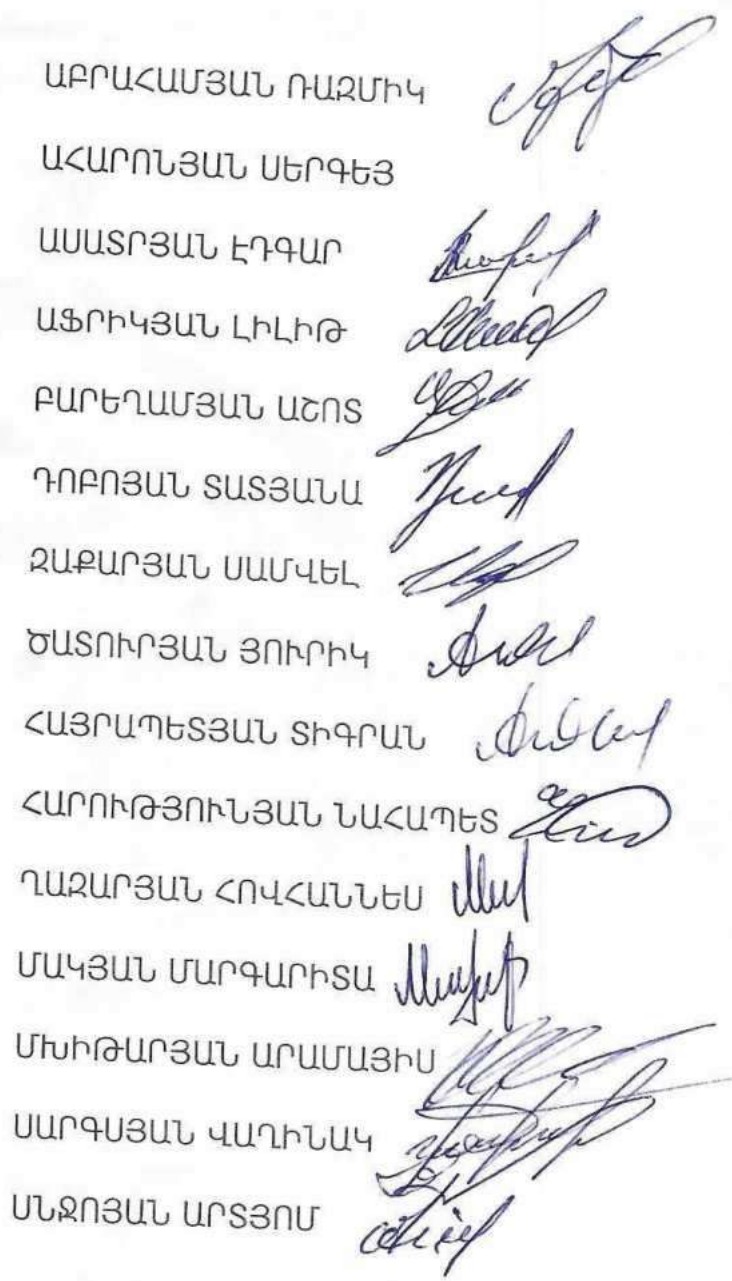 ԱԲՐԱՀԱՄՅԱՆ ՌԱԶՄԻԿ
ԱՀԱՐՈՆՅԱՆ ՍԵՐԳԵՅ
ԱՍԱՏՐՅԱՆ ԷԴԳԱՐ
ԱՖՐԻԿՅԱՆ ԼԻԼԻԹ
ԲԱՐԵՂԱՄՅԱՆ ԱՇՈՏ
ԴՈԲՈՅԱՆ ՏԱՏՅԱՆԱ
ԶԱՔԱՐՅԱՆ ՍԱՄՎԵԼ
ԾԱՏՈՒՐՅԱՆ ՅՈՒՐԻԿ
ՀԱՅՐԱՊԵՏՅԱՆ ՏԻԳՐԱՆ
ՀԱՐՈՒԹՅՈՒՆՅԱՆ ՆԱՀԱՊԵՏ
ՂԱԶԱՐՅԱՆ ՀՈՎՀԱՆՆԵՍ
ՄԱԿՅԱՆ ՄԱՐԳԱՐԻՏԱ
ՄԽԻԹԱՐՅԱՆ ԱՐԱՄԱՅԻՍ
ՍԱՐԳՍՅԱՆ ՎԱՂԻՆԱԿ
ՍՆՋՈՅԱՆ ԱՐՏՅՈՄ